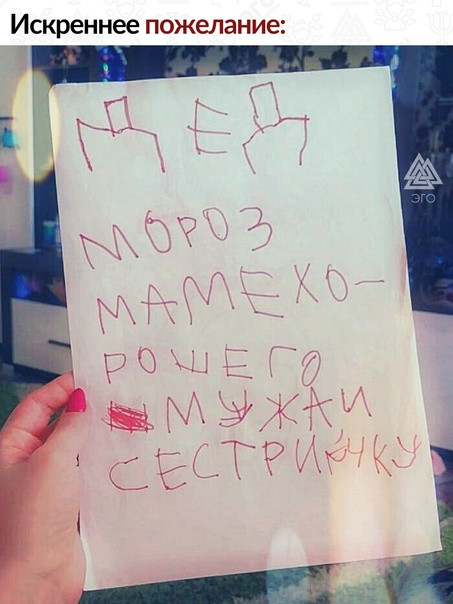 Искреннее пожелание:
ЭГО
ДЕД
МОРОЗ
МАМЕХО-
РОШЕГО
МУЖАИ
СЕСТРИЧКУ